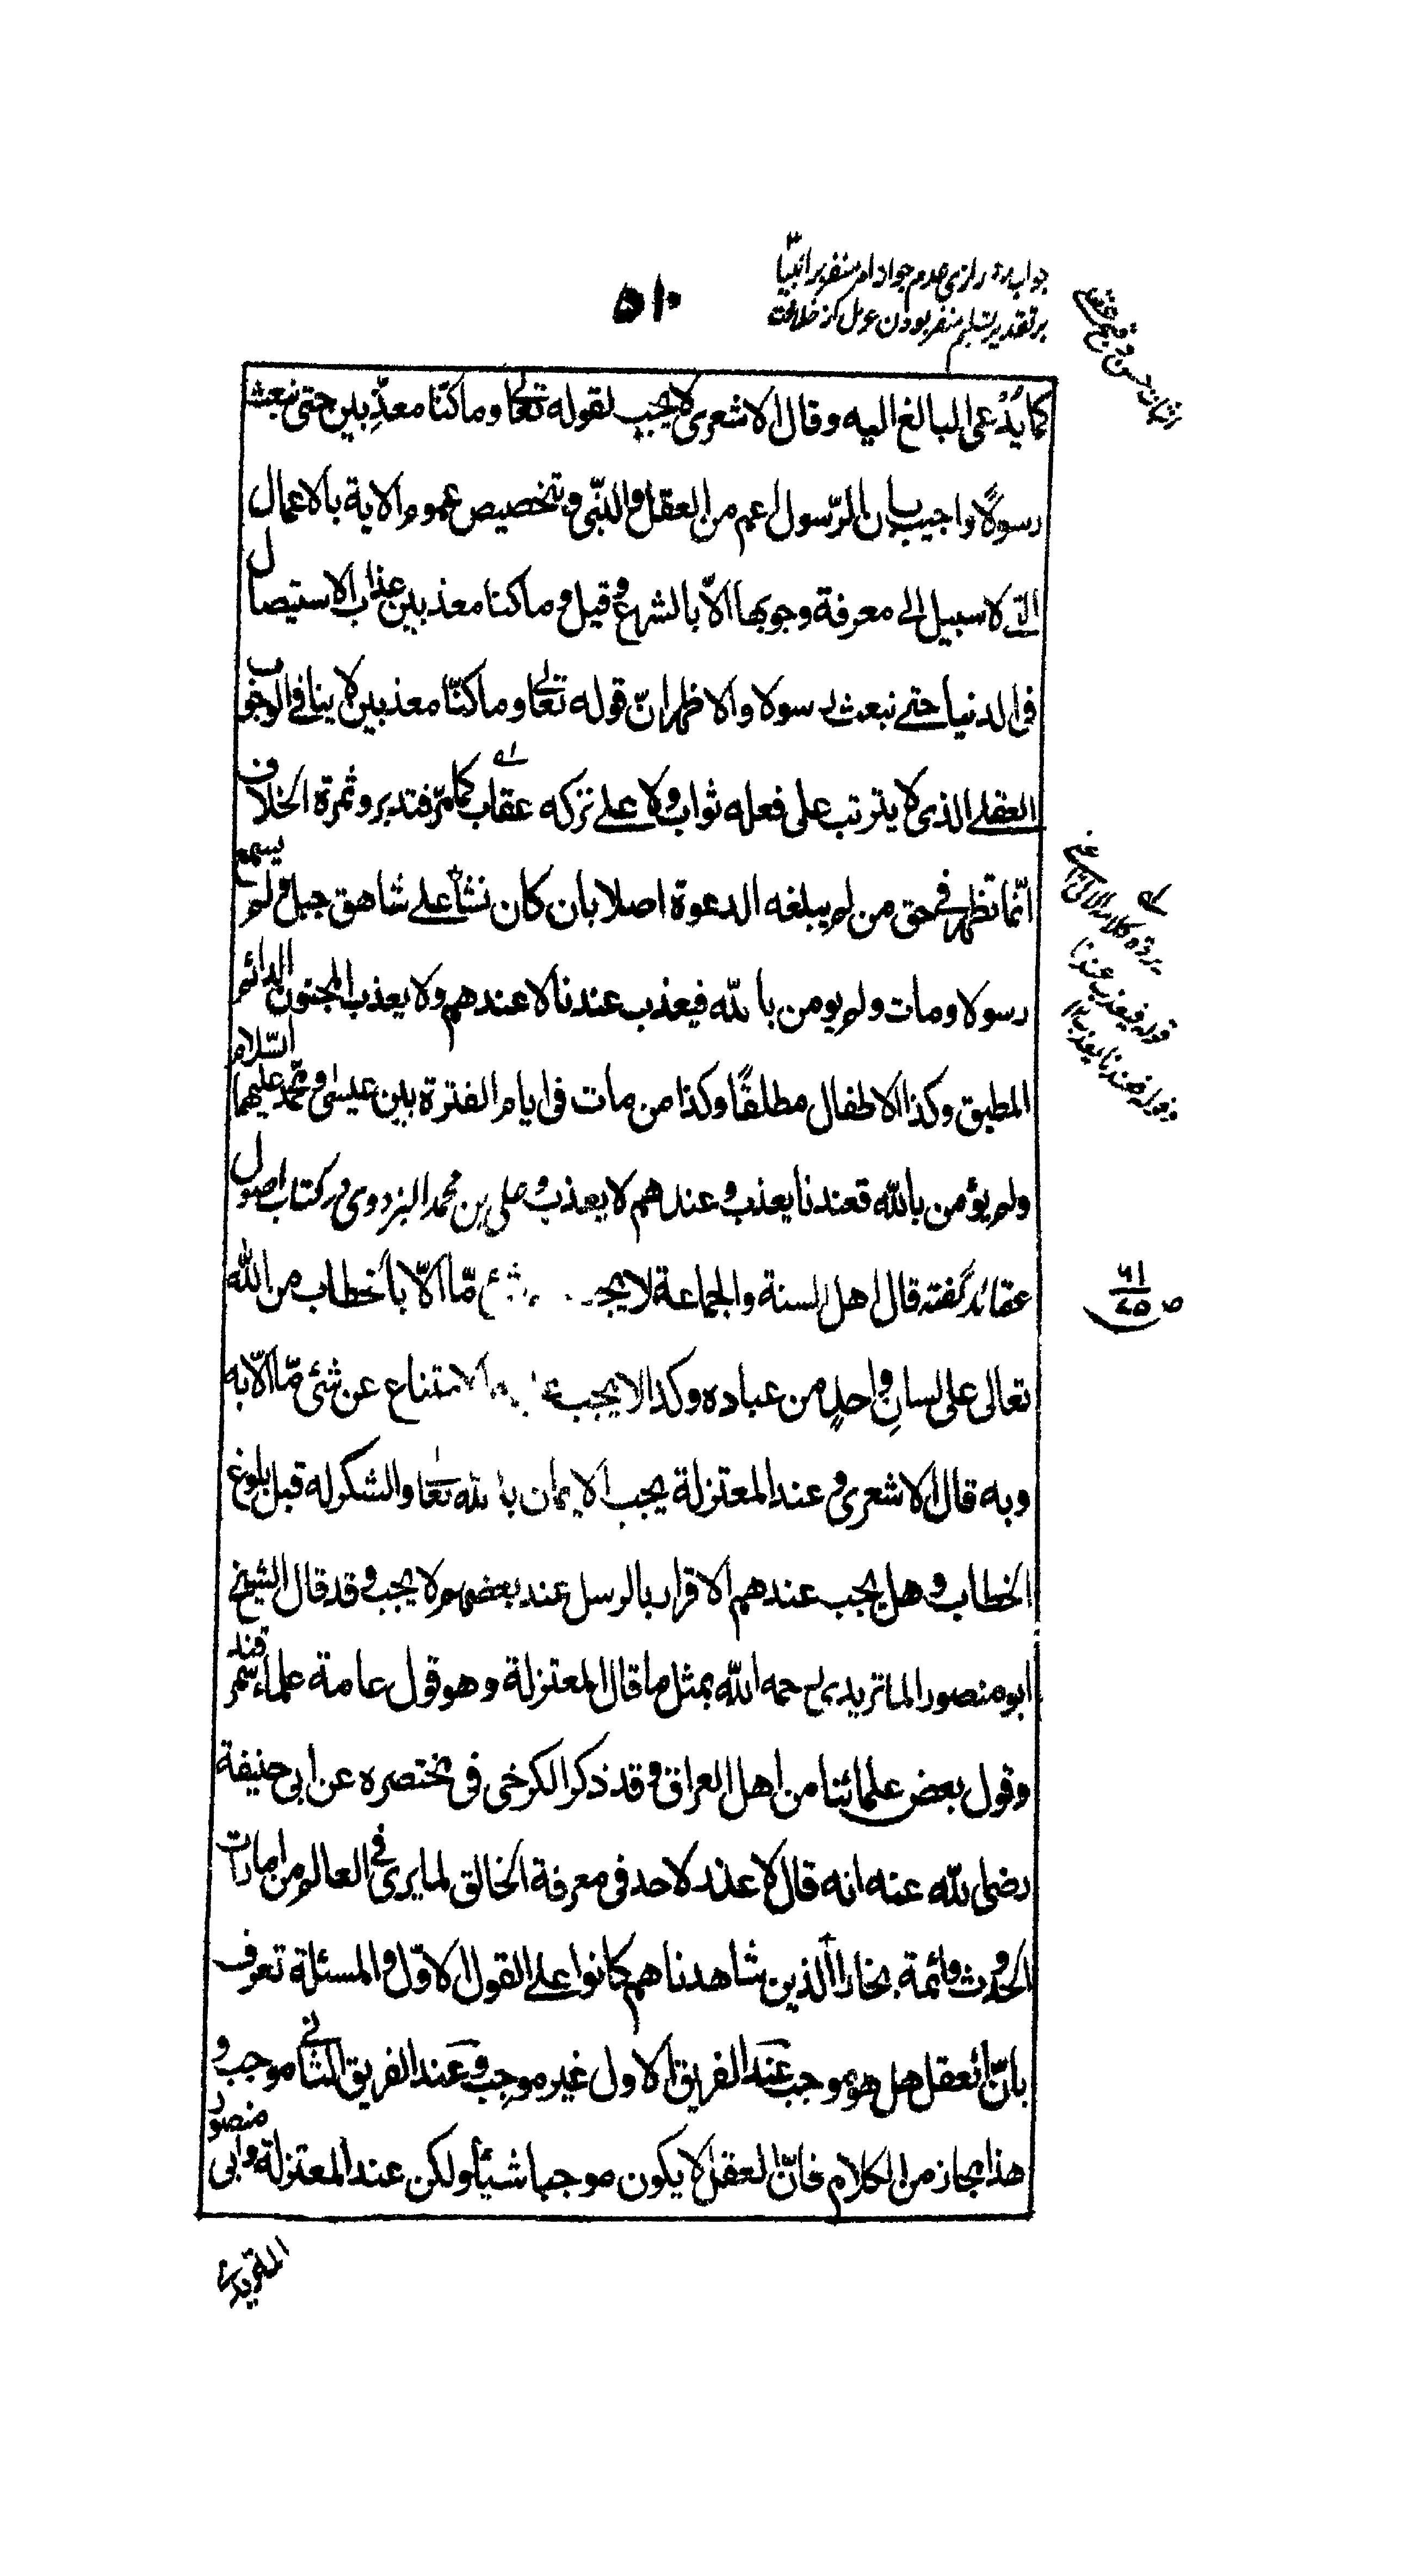 ۵۱۰
جواب رازی عدم جواز امر منفر بر انبیا
بر تقدیر تسلیم منفر بودن عزل از خلافت
اثبات حسن و قبح عقلی
كما يُدْعى البالغ اليه وقال الاشعرى لا يجب لقوله تعالى وما كنّا معذِّبين حتى نبعث
رسولاً واجيب بان الرّسول اعم من العقل والنّبى وتخصيص عموم الاية بالاعمال
التى لا سبيل الى معرفة وجوبها الاّ بالشرع وقيل وما كنا معذبين عذاب الاستيصال
فى الدنيا حتى نبعث رسولا والاظهر انّ قوله تعالى وما كنّا معذبين لا ينافى الوجوب
العقلى الذى لا يترتب على فعله ثواب ولا على تركه عقاب كما مرّ فتدبر وثمرة الخلاف
انّما تظهر فى حق من لم يبلغه الدعوة اصلا بان كان نشأ على شاهق جبل ولم يسمع
رسولا ومات ولم يومن بالله فيعذب عندنا لا عندهم ولا يعذب المجنون الدائم
المطبق وكذا الاطفال مطلقًا وكذا من مات فى ايام الفترة بين عيسى ومحمّد عليهما السّلام
ولم يؤمن بالله فعندنا يعذب وعندهم لا يعذب وعلى بن محمد البزدوى در كتاب اصول
عقائد گفته قال اهل السنة والجماعة لا يجب شئ مّا الاّ بالخطاب من الله
تعالى على لسان واحدٍ من عباده وكذا لا يجب الامتناع عن شئ مّا الاّ به
وبه قال الاشعرى وعند المعتزلة يجب الايمان بالله تعالى والشكر له قبل بلوغ
الخطاب وهل يجب عندهم الاقرار بالرسل عند بعضهم لا يجب وقد قال الشيخ
ابو منصور الماتريدى رحمه الله بمثل ما قال المعتزلة وهو قول عامة علماء سمرقند
وقول بعض علمائنا من اهل العراق وقد ذكر الكرخى فى مختصره عن ابى حنيفة
رضى الله عنه انه قال لا عذر لاحد فى معرفة الخالق لما يرى فى العالم من امارات
الحدوث وائمة بخارا الذين شاهدناهم كانوا على القول الاوّل والمسئلة تعرف
بانّ العقل هل هو موجب عند الفريق الاول غير موجب وعند الفريق الثانى موجب و
هذا مجاز من الكلام فانّ العقل لا يكون موجبا شيئا ولكن عند المعتزلة وابى منصور
قوله فيعذب عندنا
الماتريدى